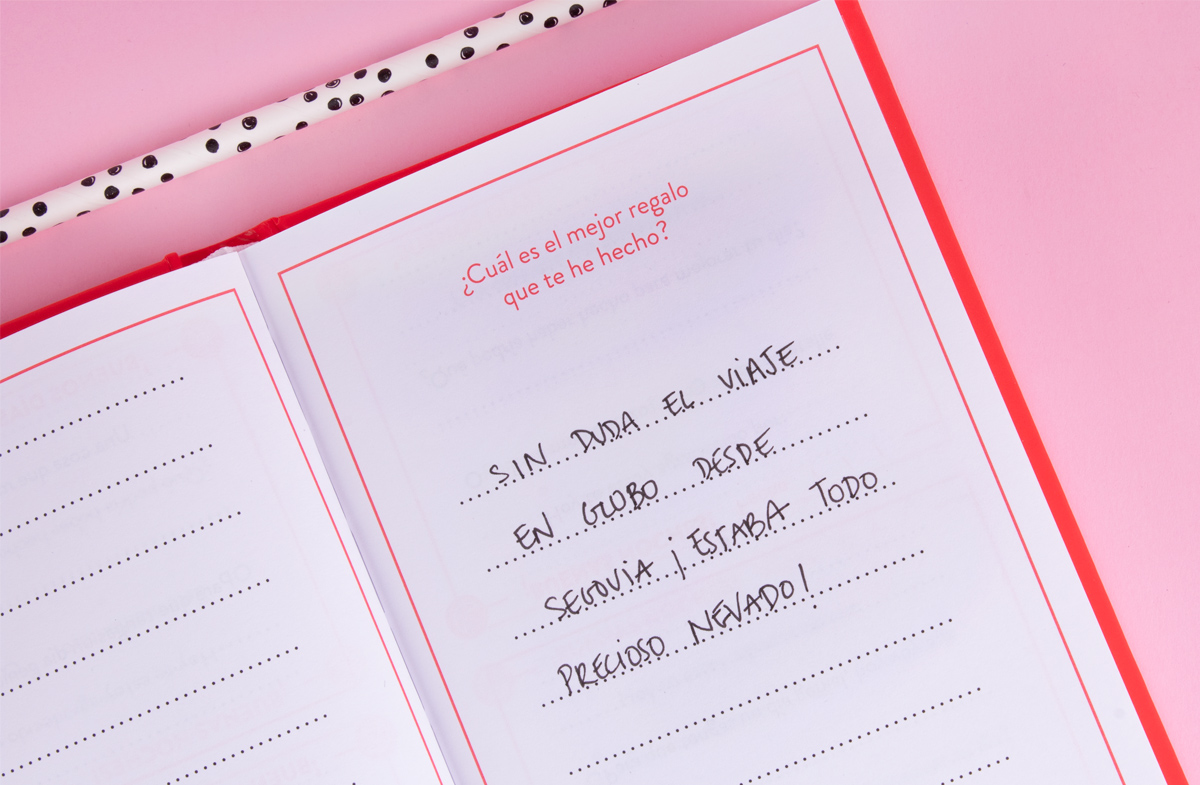 ¿Cuál es el mejor regalo
que te he hecho?
SIN DUDA EL VIAJE
EN GLOBO DESDE
SEGOVIA ¡ESTABA TODO
PRECIOSO NEVADO!